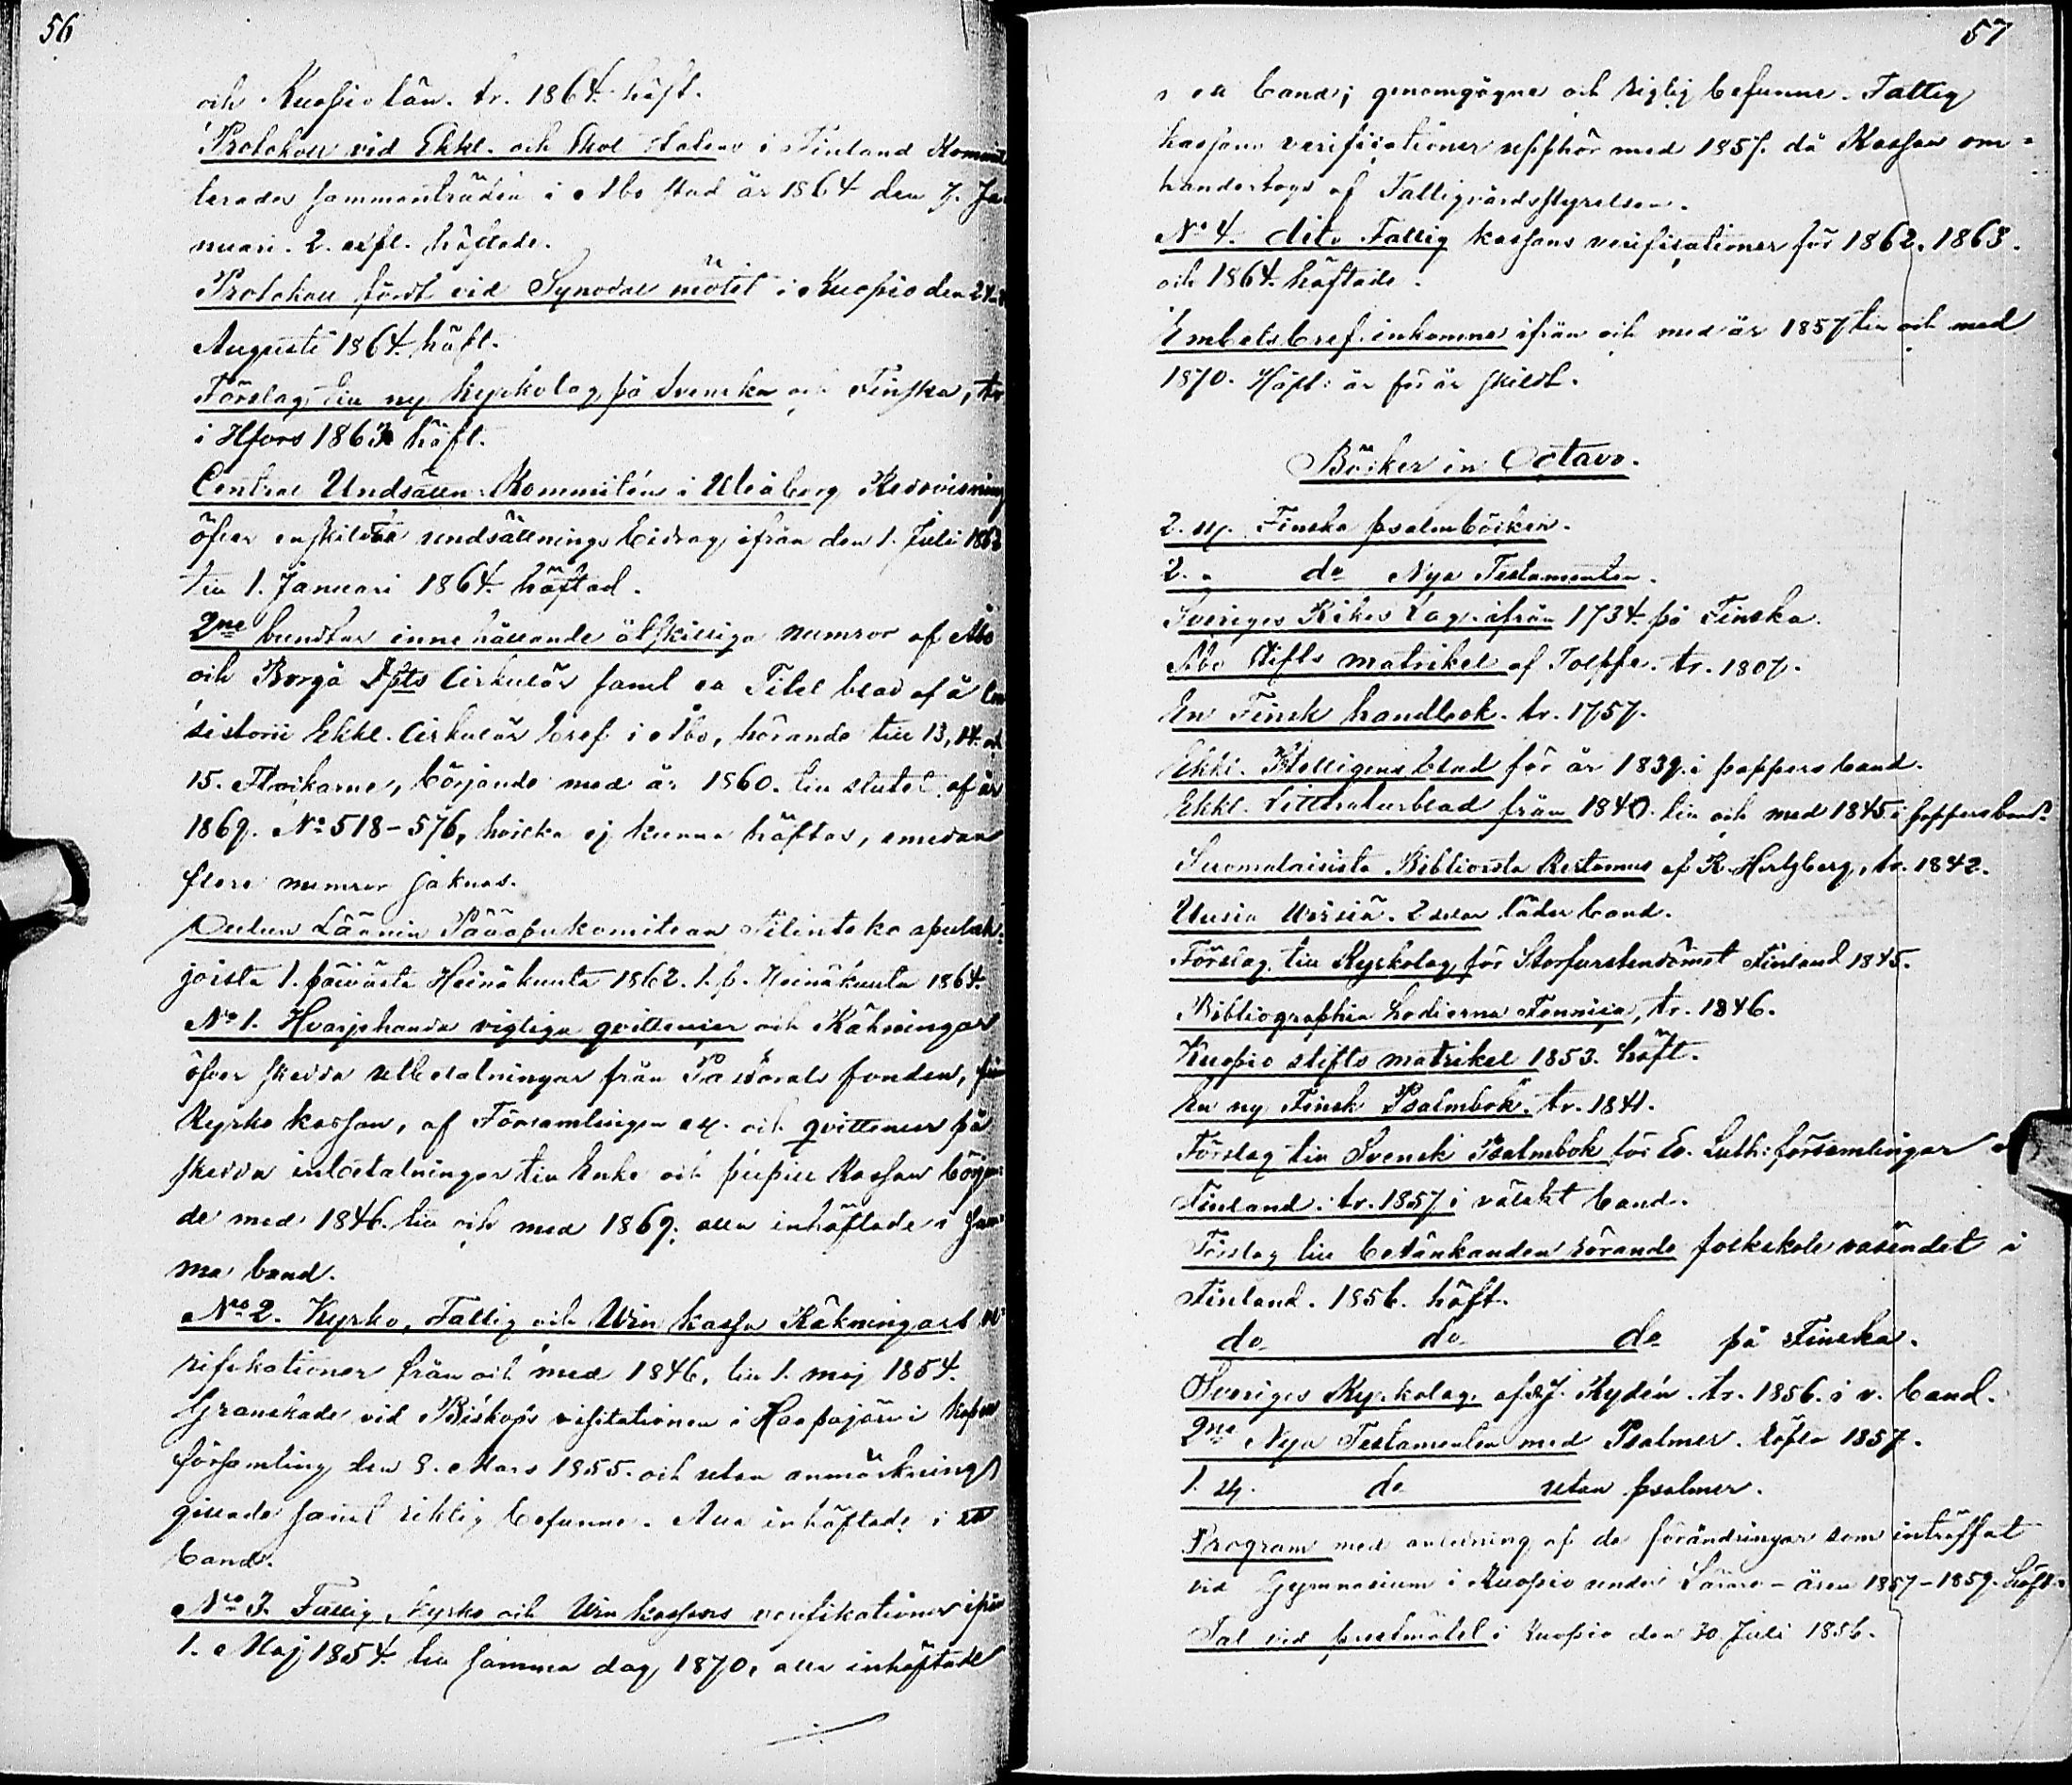 56
och Kuopio län. tr. 1864. häft.
Protokoll vid Ekkl. och Skol Statens i Finland Kommit
terades sammanträden i Åbo stad år 1864 den 7. Ja
nuari. 2. expl. häftade.
Protokoll fördt vid Synodal mötet i Kuopio den 24
Augusti 1864. häft.
Förslag till ny kyrkolag, på Svenska och Finska, tr
i Hfors 1863 häft.
Central Undsättn: Kommiténs i Uleåborg Redovisning
öfver enskilda undsättnings bidrag ifrån den 1. Juli 1862
till 1. Januari 1864. häftad.
2ne bundtar innehållande åtskilliga numror af Åbo
och Borgå Spts Cirkulär samt ea Titel blad af Å Con
sistorii Ekkl. Cirkulär bref i Åbo, hörande till 13, 14. och
15. Flockarne, börjande med år 1860. till slutet af år
1869. No 518-576, hvilka ej kunna häftas, emedan
flere numror saknas.
Oulun Läänin Pääapukomitean Tilinteko apulah-
joista 1. päivästä Heinäkuuta 1862. 1. p. Heinäkuuta 1864.
No 1. Hvarjehanda vigtiga qvittenser och Räkningar
öfver skedda utbetalningar från Pastorals fonden, från
Kyrko kassan, af Församlingen ex. och qvittenser på
skedda inbetalningar till Enke och pupill Kassan början-
de med 1846. till och med 1869. alla inhäftade i sam-
ma band.
No 2. Kyrko, Fattig och Vin kassa Räkningars ve-
rifikationer från och med 1846, till 1. maj 1854.
Granskade vid Biskops visitationen i Haapajärvi kapell
församling den 8. Mars 1855. och utan anmärkning
gillade samt riktig befunne. Alla inhäftade i ett
band.
No 3. Fattig, kyrko och Vin kassans verifikationer ifrån
1. Maj 1854. till samma dag, 1870, alla inhäftade
57
i ett band; genomgågne och rigtig befunne. Fattig
kassans verifikationer upphör med 1857. då Kassan om-
händertogs af Fattigvårdsstyrelsen.
No 4. dito Fattig kassans verifikationer för 1862. 1863.
och 1864. häftade.
Embetsbref inkomne ifrån och med år 1857 till och med
1870. Häft: år för år skildt.
Böcker in Octavo.
2. ex. Finska psalmböcker.
2. " do Nya Testamenten.
Sveriges Rikes Lag ifrån 1734. på Finska.
Åbo Stifts matrikel af Tolpo. tr. 1807.
En Finsk handbok. tr. 1757.
Ekkl. Intelligens blad för år 1839. i pappers band.
Ekkl. Litteraturblad från 1840. till och med 1845. i pappers band.
Suomalaisista Biblioista Kertomus af R. Hertzberg, tr. 1842.
Uusia Virsiä. 2 delar läder band.
Förslag till Kyrkolag, för Storfurstendömet Finland 1845.
Bibliographia hodierna Fennica, tr. 1846.
Kuopio stifts matrikel 1853. häft.
En ny Finsk Psalmbok. tr. 1841.
Förslag till Svensk Psalmbok för Ev. Luth: församlingar i
Finland. tr. 1857 i välskt band.
Förslag till betänkanden rörande folkskole väsendet i
Finland. 1856. häft.
do do do på Finska.
Sveriges Kyrkolag, af J. Rydén. tr. 1856. i v. band.
2ne Nya Testamenten med Psalmer. köpta 1857.
1. ex. do utan psalmer.
Program med anledning af de förändringar som inträffat
vid Gymnasium i Kuopio under Läro-åren 1857-1859. häft.
Tal vid prestmötet i Kuopio den 30 Juli 1856.